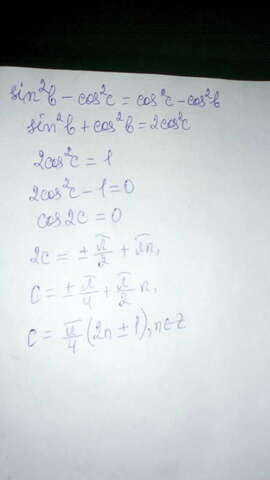 sin²b - cos²c = cos²c - cos²b
sin²b + cos²b = 2cos²c
2cos²c = 1
2cos²c - 1 = 0
cos2c = 0
2c = ± π/2 + πn,
c = ± π/4 + π/2 n,
c = π/4 (2n ± 1), n∈Z